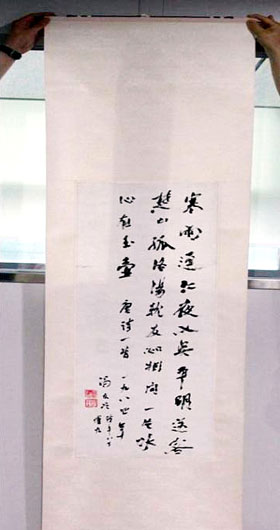 寒雨連江夜入吳平明送客
楚山孤洛陽親友如相問一片冰
心在玉壺 唐詩一首 一九八四年